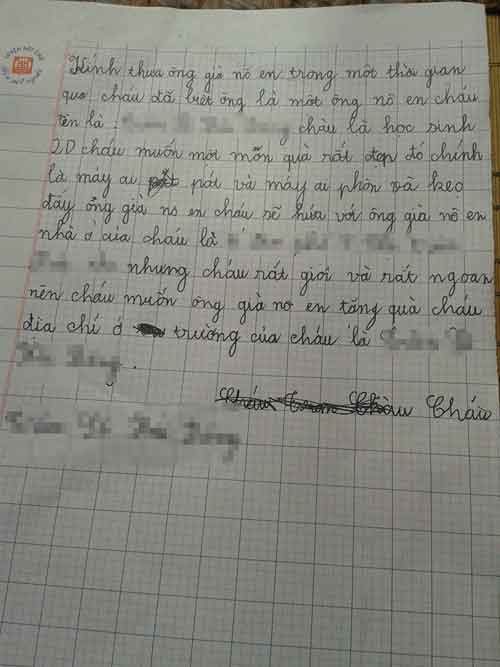 Kính thưa ông già nô en trong một thời gian
qua cháu đã biết ông là một ông nô en cháu
tên là : cháu là học sinh
2D cháu muốn một món quà rất đẹp đó chính
là máy ai pát và máy ai phôn và kẹo
đấy ông già no en cháu sẽ hứa với ông già nô en
nhà ở của cháu là
nhưng cháu rất giỏi và rất ngoan
nên cháu muốn ông già no en tăng quà cháu
đĩa chỉ ở trường của cháu là
Cháu